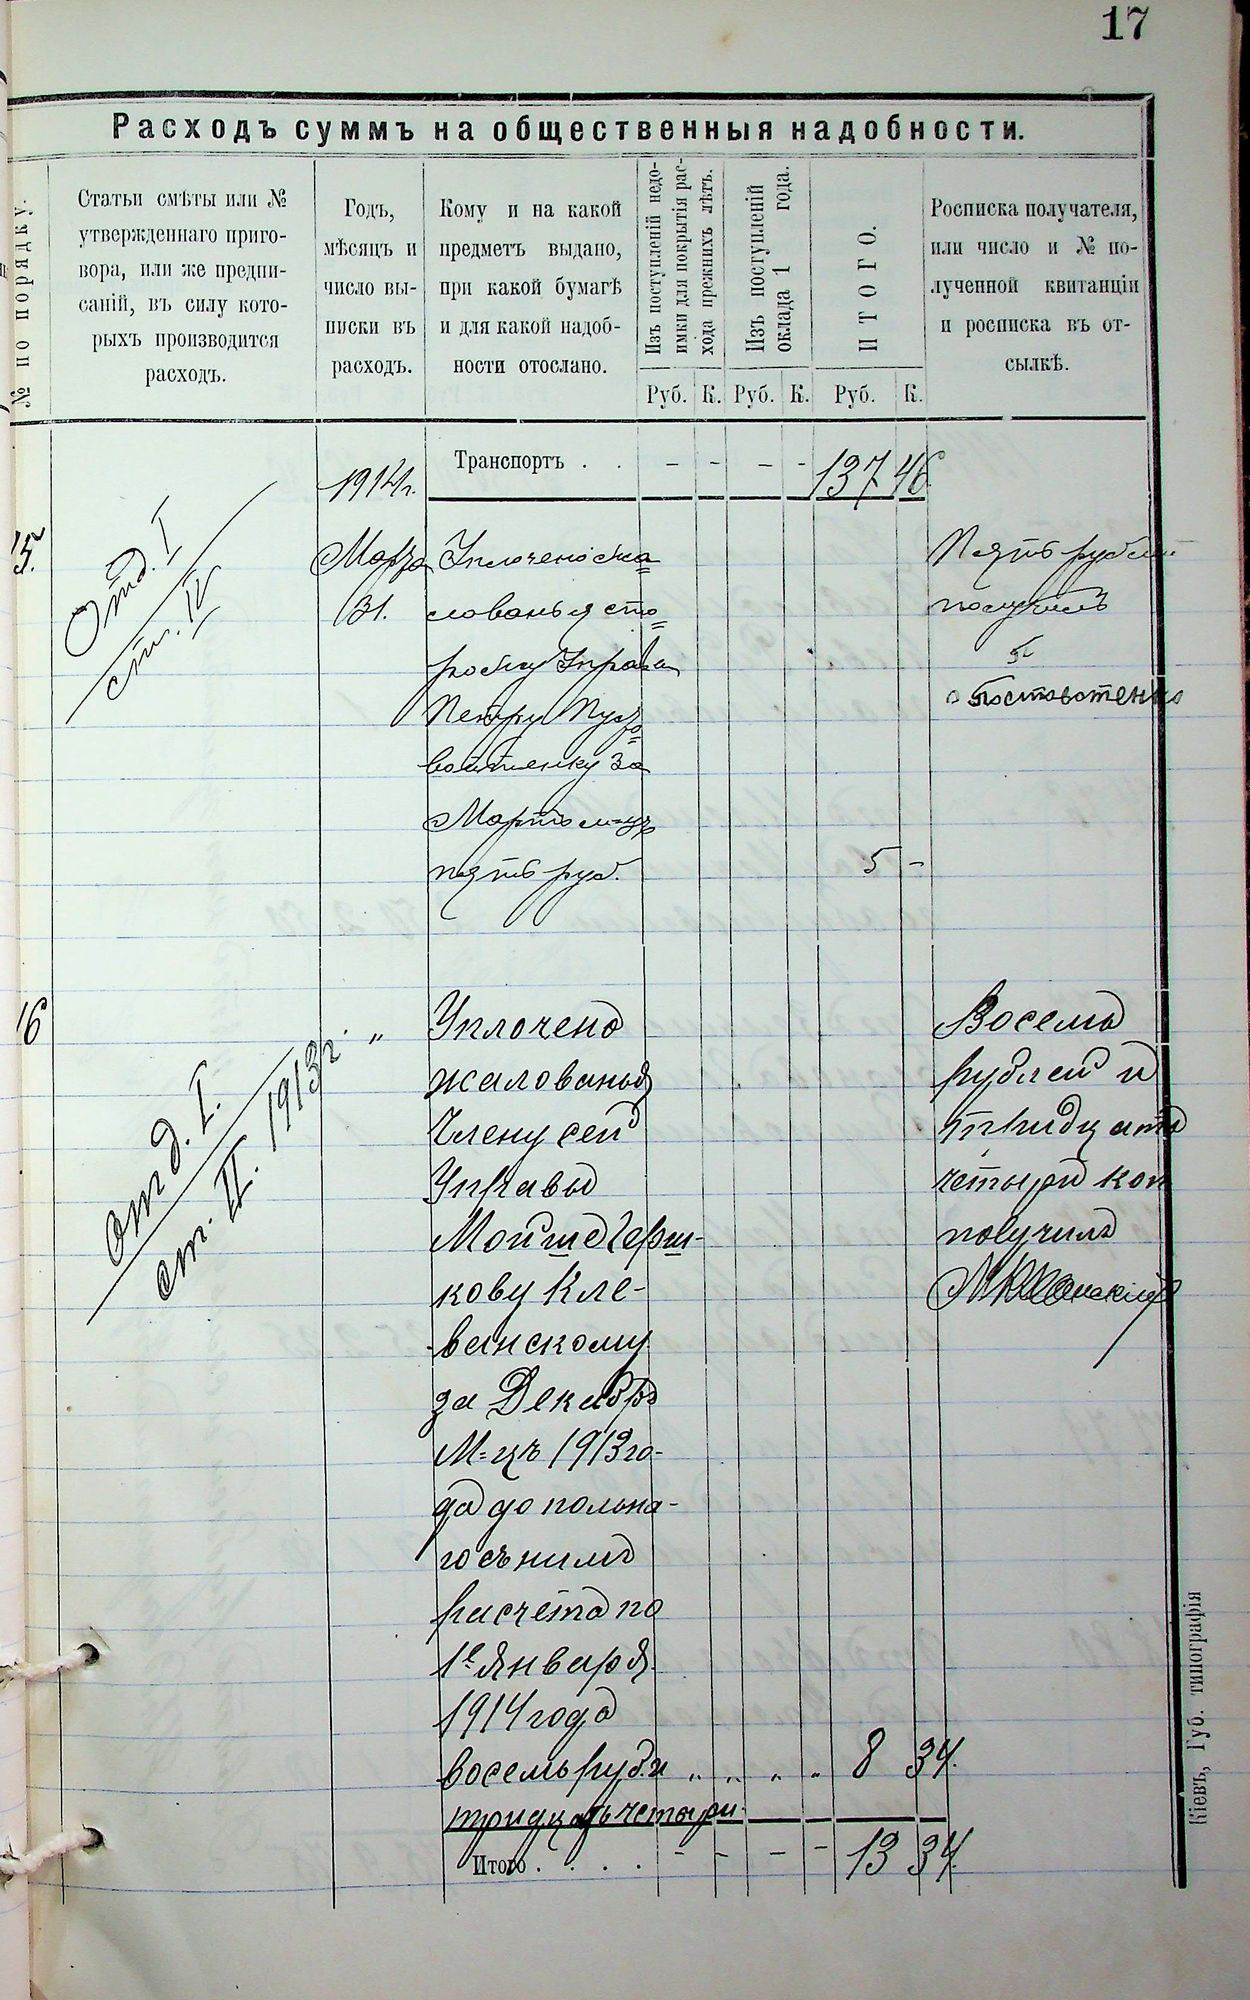 17
Расходъ суммъ на общественныя надобности.
№ по порядку.
Статьи смѣты или №
утвержденнаго приго-
вора, или же предпи-
саній, въ силу кото-
рыхъ производится
расходъ.
Годъ,
мѣсяцъ и
число вы-
писки въ
расходъ.
Кому и на какой
предметъ выдано,
при какой бумагѣ
и для какой надоб-
ности отослано.
Изъ поступленій недо-
имки для покрытія рас-
хода прежнихъ лѣтъ.
Изъ поступленій
оклада 1 года.
ИТОГО.
Росписка получателя,
или число и № по-
лученной квитанціи
и росписка въ от-
сылкѣ.
Руб. К. Руб. К. Руб. К.
1914 г.
Транспортъ . . - - - - 137 46
15.
Отд. I
ст. IV
Марта
31.
Уплочено жа=
лованья сто=
рожу Управы
Петру
за
Мартъ м-цъ
пять руб. 5 -
Пять рублей
получилъ
16
отд. I.
ст. II. 1913 г.
"
Уплочено
жалованья
Члену сей
Управы
Мойше Герш-
кову Кле-
ванскому
за Декабрь
М=цъ 1913 го-
да до полна-
го съ нимъ
расчета по
1е Января
1914 года
восемь руб. и " " " " 8 34.
тридцать четыри
Восемь
рублей и
тридцать
четыри коп
получилъ
Итого . . . . - - - - 13 34.
Кіевъ, Губ. типографія